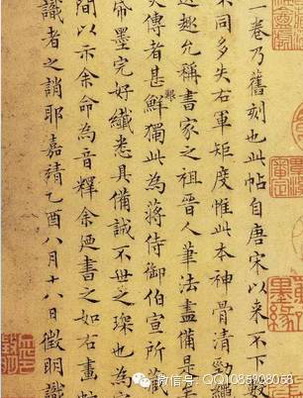 一卷乃舊刻也此帖自唐宋以來不下數
不同多失右軍矩度惟此本神骨清勁
趣允稱書家之祖晉人筆法盡備是
傳者甚鮮獨此為蔣侍御伯宣所藏
帋墨完好纖悉具備誠不世之琛也為
間以示余命為音釋余廼書之如右畫
識者之誚耶 嘉靖乙酉八月十八日徵明識
微信号: QQ1085908058